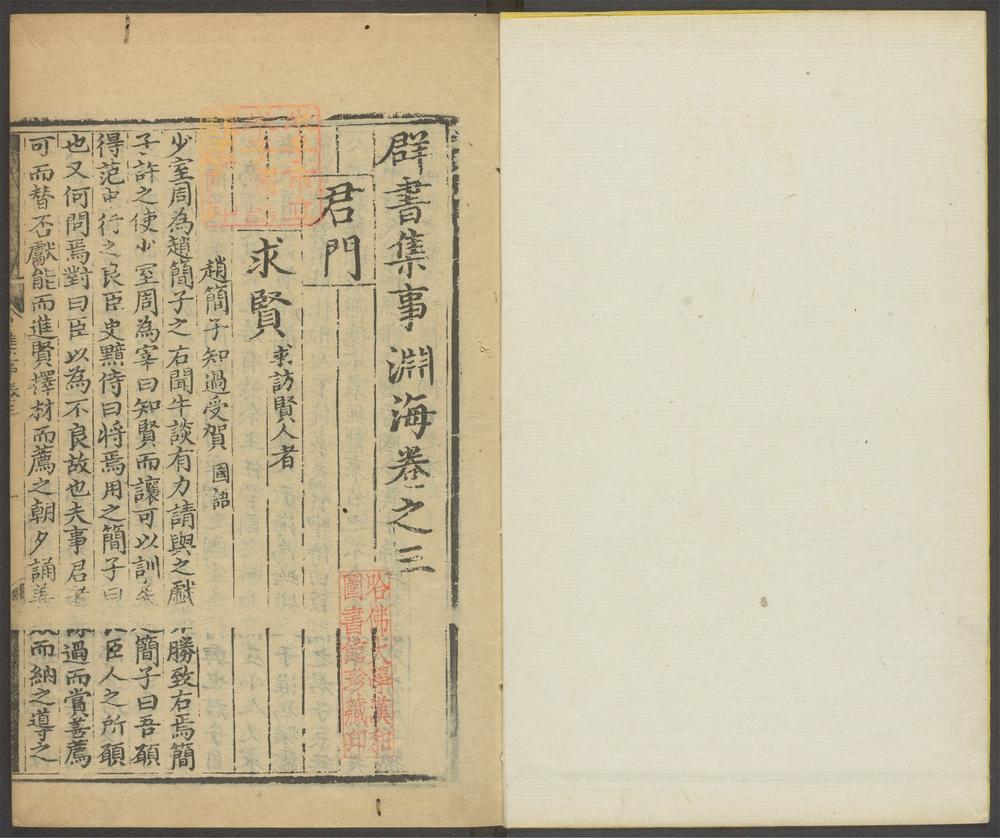 群書集事淵海卷之三
君門
求賢 求訪賢人者
趙簡子知過受賀 國語
少室周為趙簡子之右聞牛談有力請與之戲勝致右焉簡
子許之使少室周為宰曰知賢而讓可以訓簡子曰吾願
得范中行之良臣史黯侍曰將焉用之簡子曰良臣人之所願
也又何問焉對曰臣以為不良故也夫事君者過而賞善薦
可而替否獻能而進賢擇材而薦之朝夕誦善而納之導之
哈佛大學漢和
圖書館珍藏印